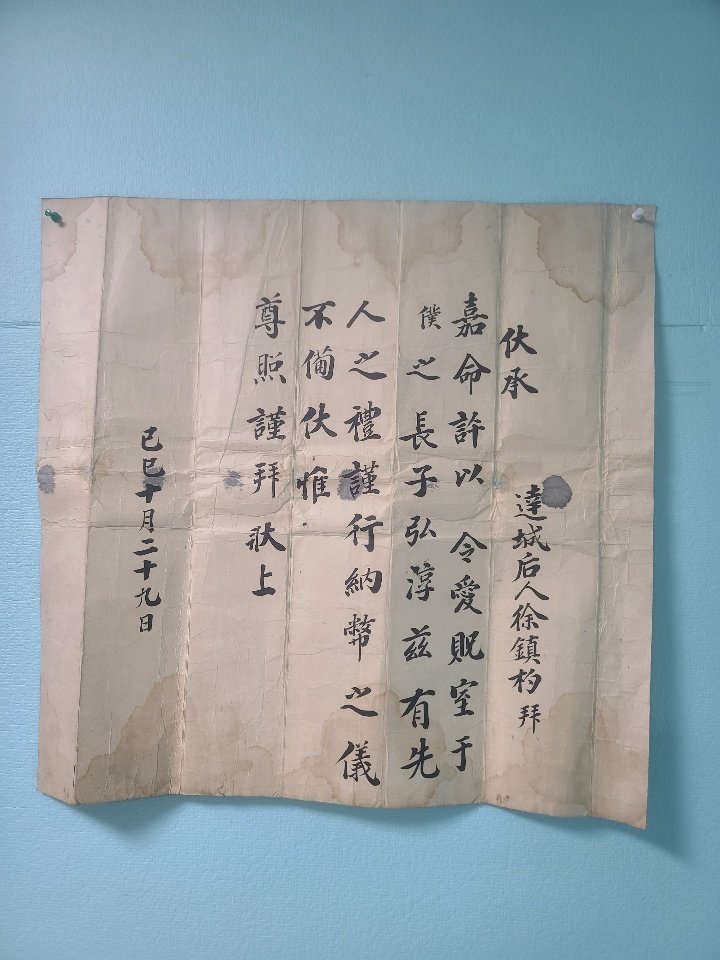 伏承
達城后人徐鎮杓 拜
嘉命許以 令愛貺室于
僕之長子弘淳茲有先
人之禮謹行納幣之儀
不備伏惟
尊照謹拜狀上
己巳十月二十九日